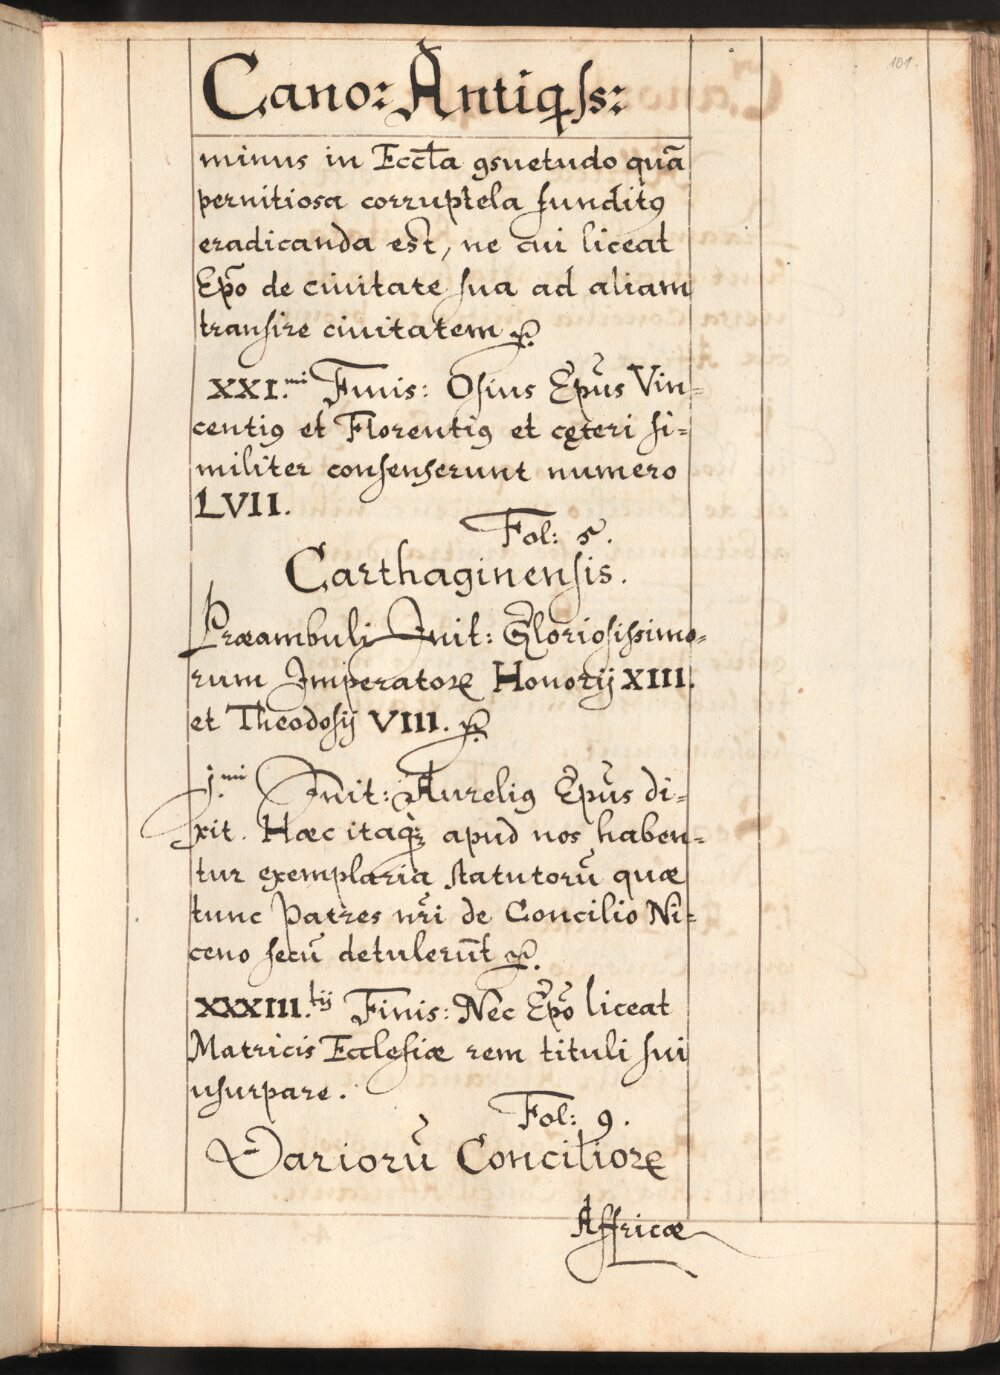 101.
Cano: Antiqss:
minus in Eccła ꝯsuetudo quā
pernitiosa corruptela funditꝰ
eradicanda est, ne cui liceat
Ep̃o de ciuitate sua ad aliam
transire ciuitatem
XXI.mi Finis: Osius Ep̃us Vin=
centiꝰ et Florentiꝰ et cęteri si=
militer consenserunt numero
LVII.
Fol: 5.
Carthaginensis.
Præambuli Init: Gloriosissimo=
rum Imperatorꝝ Honorij XIII.
et Theodosij VIII.
j.mi Init: Aureliꝰ Ep̃us di=
xit. Hæc itaqꝫ apud nos haben=
tur exemplaria statutorū quæ
tunc Patres nr̃i de Concilio Ni=
ceno secū detulerūt
XXXIII.tij Finis: Nec Ep̃o liceat
Matricis Ecclesiæ rem tituli sui
usurpare.
Fol: 9.
Variorū Conciliorꝝ
Affricæ